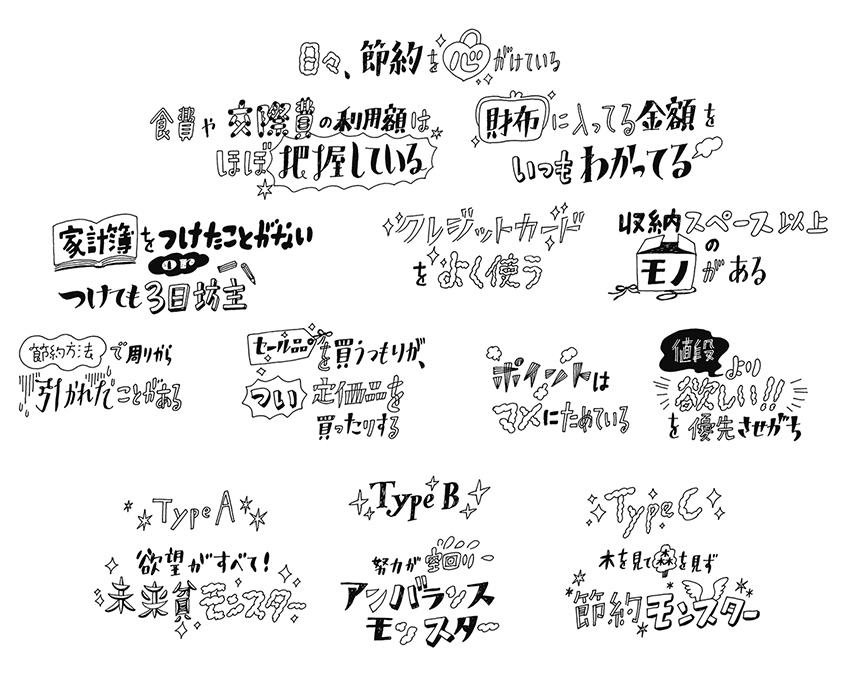 日々、節約を心がけている
食費や交際費の利用額は
ほぼ把握している
財布に入ってる金額を
いつもわかってる
家計簿をつけたことがない
or
つけても3日坊主
クレジットカード
をよく使う
収納スペース以上
の
モノがある
節約方法で周りから
引かれたことがある
セール品を買うつもりが、
つい定価品を
買ったりする
ポイントは
マメにためている
値段より
欲しい!!
を優先させがち
Type A
欲望がすべて!
未来貧モンスター
Type B
努力が空回り
アンバランス
モンスター
Type C
木を見て森を見ず
節約モンスター